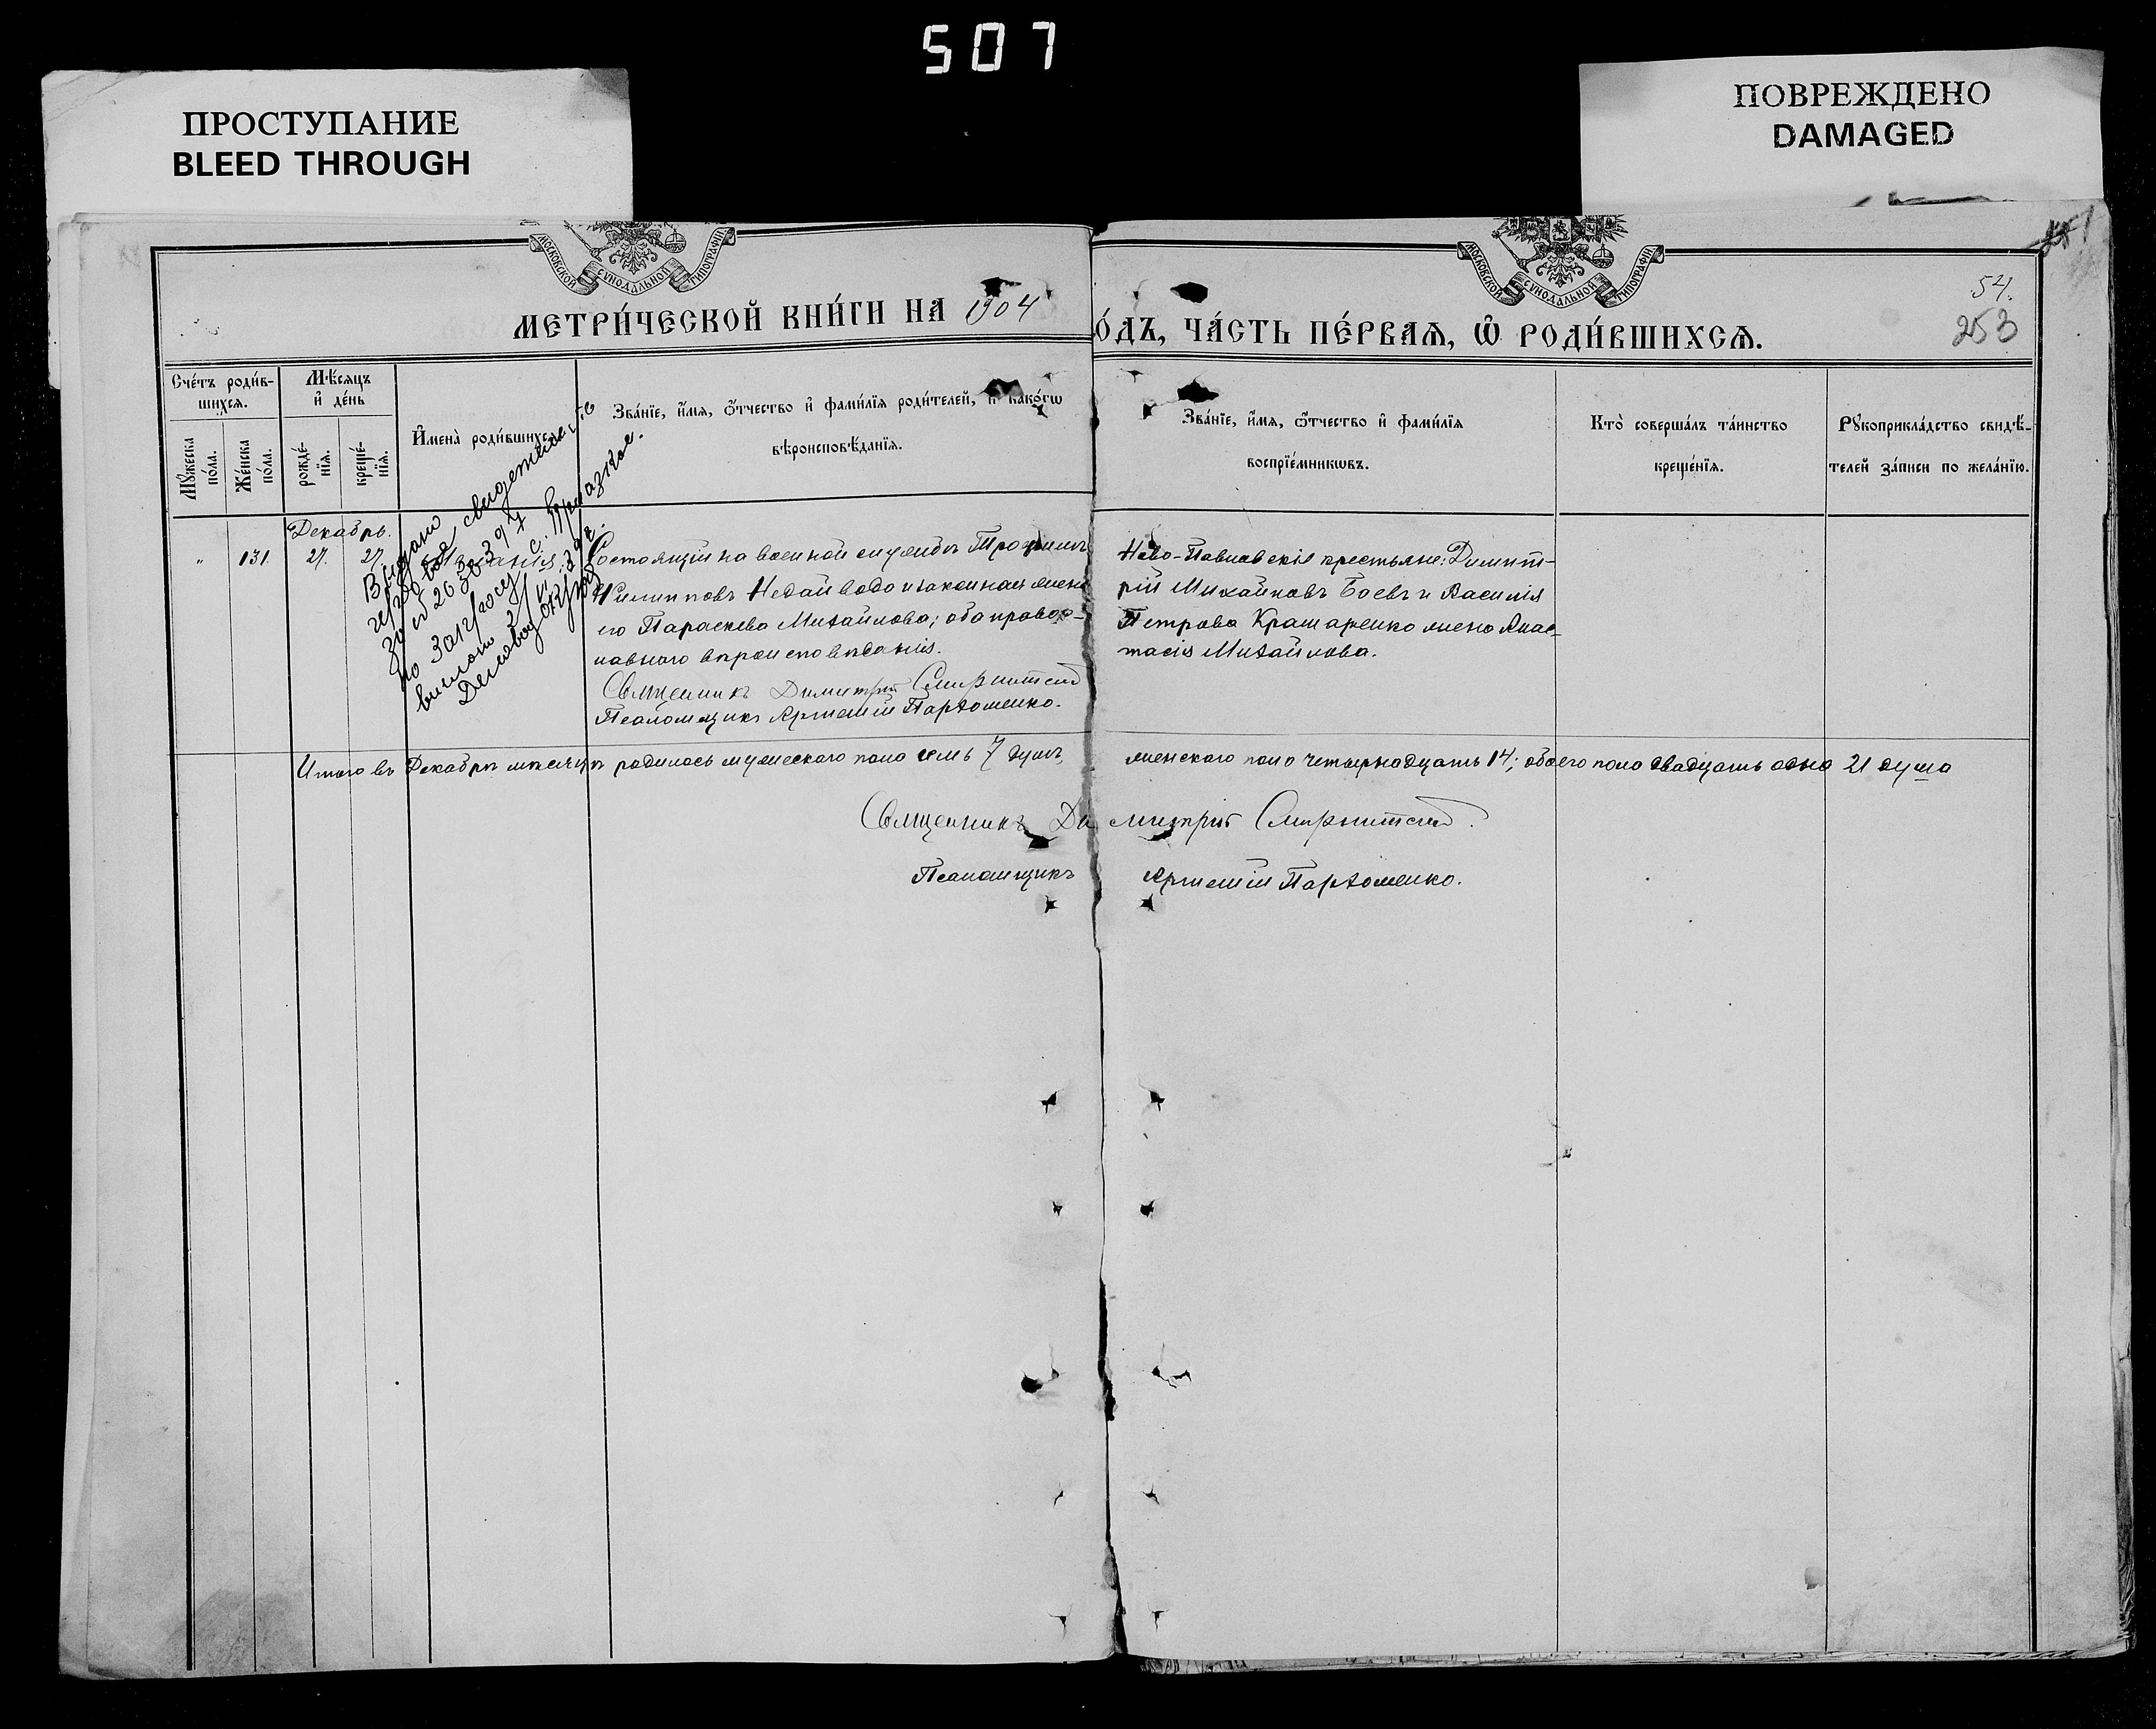 507
ПРОСТУПАНИЕ
BLEED THROUGH
ПОВРЕЖДЕНО
DAMAGED
МОСКОВСКОЙ СѴНОДАЛЬНОЙ ТИПОГРАФІИ
МОСКОВСКОЙ СѴНОДАЛЬНОЙ ТИПОГРАФІИ
54.
253
МЕТРИ́ЧЕСКОЙ КНИ́ГИ НА 1904
О́ДЪ, ЧА́СТЬ ПЕ́РВАѦ, Ѡ РОДИ́ВШИХСѦ.
Сче́тъ роди́в-
шихсѧ.
Мꙋжеска по́ла.
Же́нска по́ла.
Мѣ́сяцъ
и҆ де́нь
рожде́-
нїѧ.
креще́-
нїѧ.
И҆мена̀ роди́вшихсѧ
Зва́нїе, и҆́мѧ, ѻ҆́тчество и҆ фами́лїѧ роди́телей, и҆ како́гѡ
вѣроисповѣ́данїѧ.
Зва́нїе, и҆́мѧ, ѻ҆́тчество и҆ фами́лїѧ
воспрїе́мникѡвъ.
Кто̀ соверша́лъ та́инство
креще́нїѧ.
Рꙋкоприкла́дство свидѣ́-
телей за́писи по жела́нїю.
Декабрь.
" 131. 27. 27.
Выдано свидетельство
за № 2636397
по загсу с.
Состоящій на военной службѣ Трофимъ
Филипповъ Недайвода и законная жена
его Параскева Михайлова; оба правос-
лавнаго вѣроисповѣданія.
Священникъ Димитрій Смирнитскій
Псаломщикъ Артемій Пархоменко.
Ново-Павловскіе крестьяне: Димит-
рій Михайловъ Боевъ и Василія
Петрова Крамаренко жена Анас-
тасія Михайлова.
Итого въ Декабрѣ мѣсяцѣ родилось мужескаго пола семь 7 душъ, женскаго пола четырнадцать 14; обоего пола двадцать одна 21 душа
Священникъ Димитрій Смирнитскій.
Псаломщикъ Артемій Пархоменко.